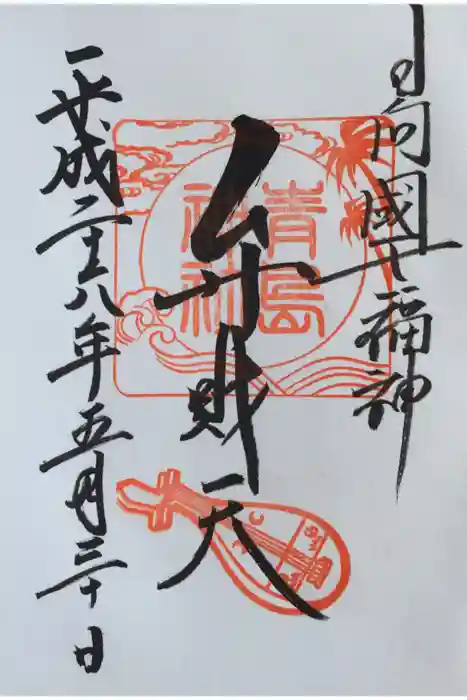 日向國七福神
弁財天
青島神社
平成二十八年五月三十日